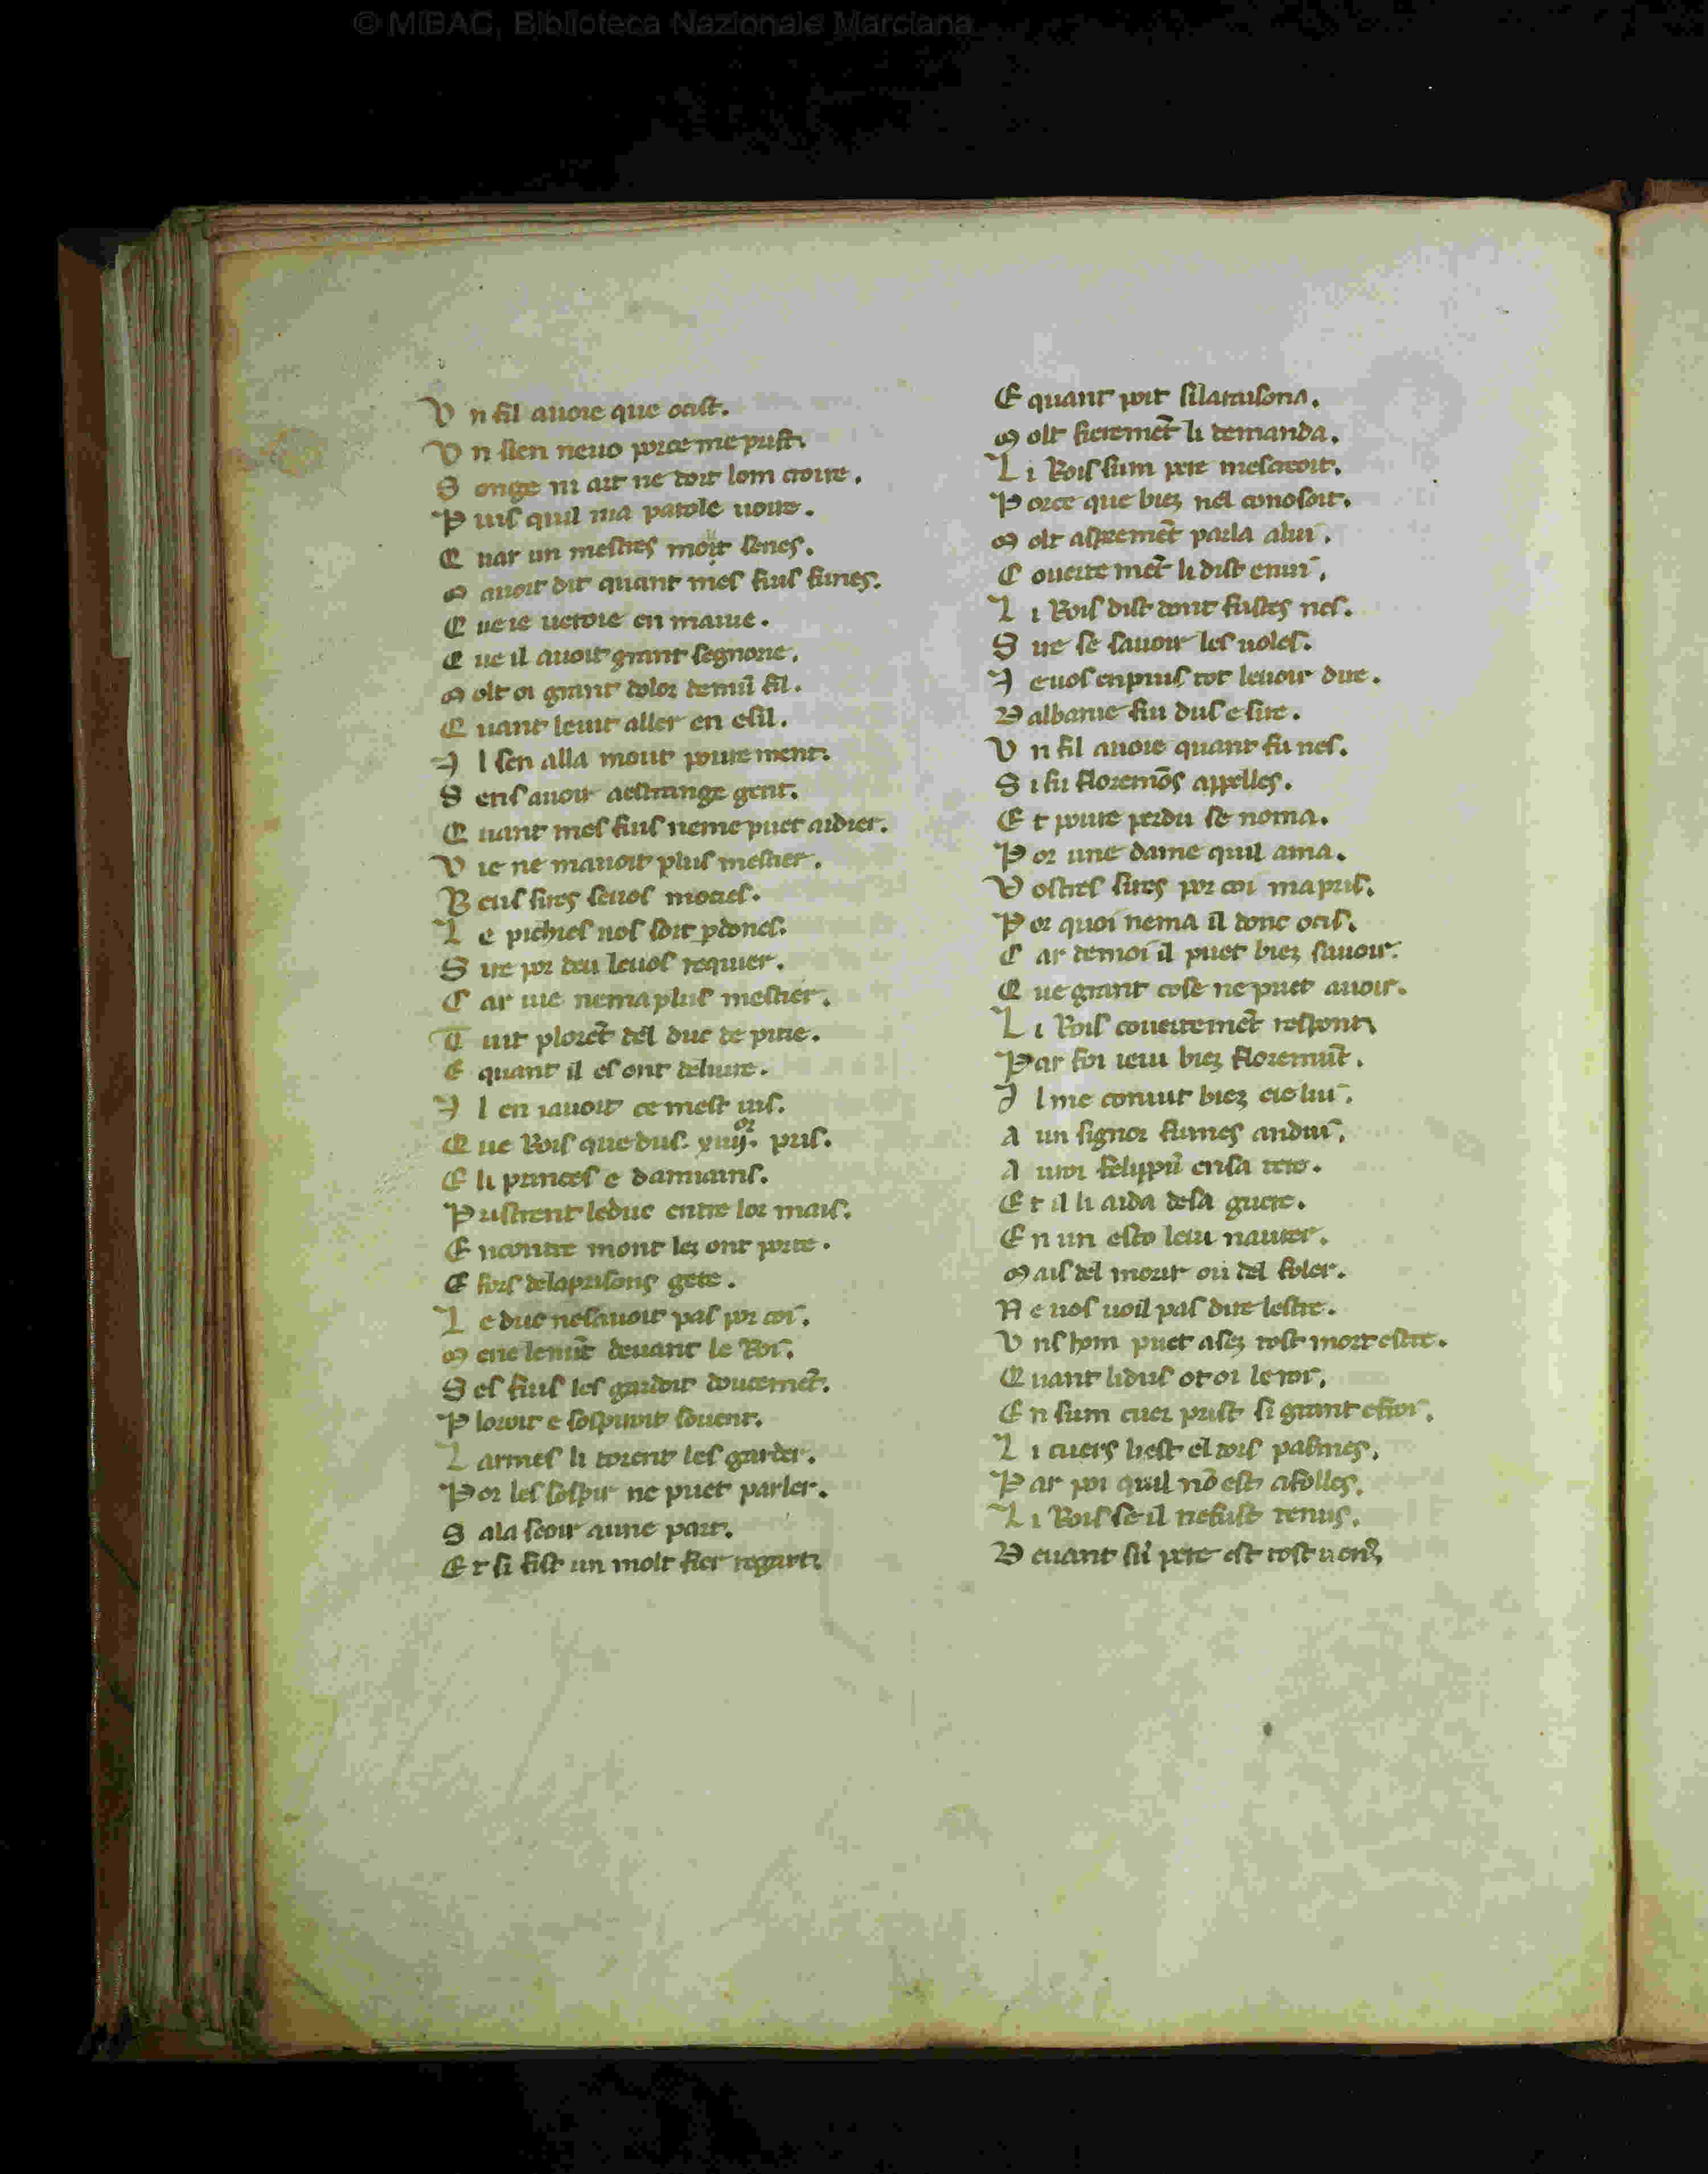 © MiBAC, Biblioteca Nazionale Marciana
U n fil auoie que ocist.
U n sien neuo porce me prist.
S onge ni art ne doit lom croire.
P uis quil ma parole uoire.
Q uar un mestres moit senes.
M auoit dit quant mes fiuls funes.
Q ue ie ueroie en maiue.
Q ue il auoit grant segnorie.
M olt oi grant dolor demū fil.
Q uant leuit aller en esil.
I l sen alla mout pourement.
S ens auoir aestrange gent.
Q uant mes fiuls neme puet aidier.
U ie ne mauoit plus mestier.
B eus sires seuos mociés.
L e pichies nos soit pdones.
S ire por deu leuos requier.
C ar uie nemaplus mestier.
T uit plorēt del duc de pitie.
E quant il es ont deliure.
I l en iauoit ce mest uis.
Q ue Rois que dus. xiiij. pris.
E li princes e damiains.
P ristrent leduc entre lor mais.
E ncontre mont lez ont porte.
E fors delaprisons gete.
L e duc nesauoit pas por coi.
M ene lenūt deuant le Roi.
S es fiuls les gardoit doucemēt.
P loroit e sospiroit souent.
L armes li torent les garder.
P or les sospir ne puet parler.
S ala seoir aune part.
E t si fist un molt fier regart.
E quant poit silaraisona.
M olt fieremēt li demanda.
L i Rois sum pere mescreoit.
P orce que biez nel conosoit.
M olt aspremēt parla alui.
C ouerte mēt li dist enui.
L i Rois dist dont fustes nes.
S ire se sauoir les uoles.
I e uos enpuis tot leuoir dire.
D albanie fui dus e sire.
U n fil auoie quant fu nes.
S i fu floremōs appelles.
E t poure perdu se noma.
P or une dame quil ama.
U ostres sires por coi mapris.
P or quoi nema il donc ocis.
C ar demoi il puet biez sauoir.
Q ue grant cose ne puet auoir.
L i Rois couertemēt respont.
P ar foi ieui biez floremūt.
I l me conuit biez eie lui.
A un signor fumes andui.
A uroi felippū ensa tere.
E t il li aida desa guere.
E n un esto leui naurer.
M ais del morir ou del foler.
N e uos uoil pas dire lestre.
U ns hom puet asez tost mort estre.
Q uant lidus ot oi le roi.
E n sum cuer prist si grant efroi.
L i cuers liest el cors pasmes.
P ar poi quil nō est afolles.
L i Rois se il nefust tenus.
D euant sū pere est tost uen9